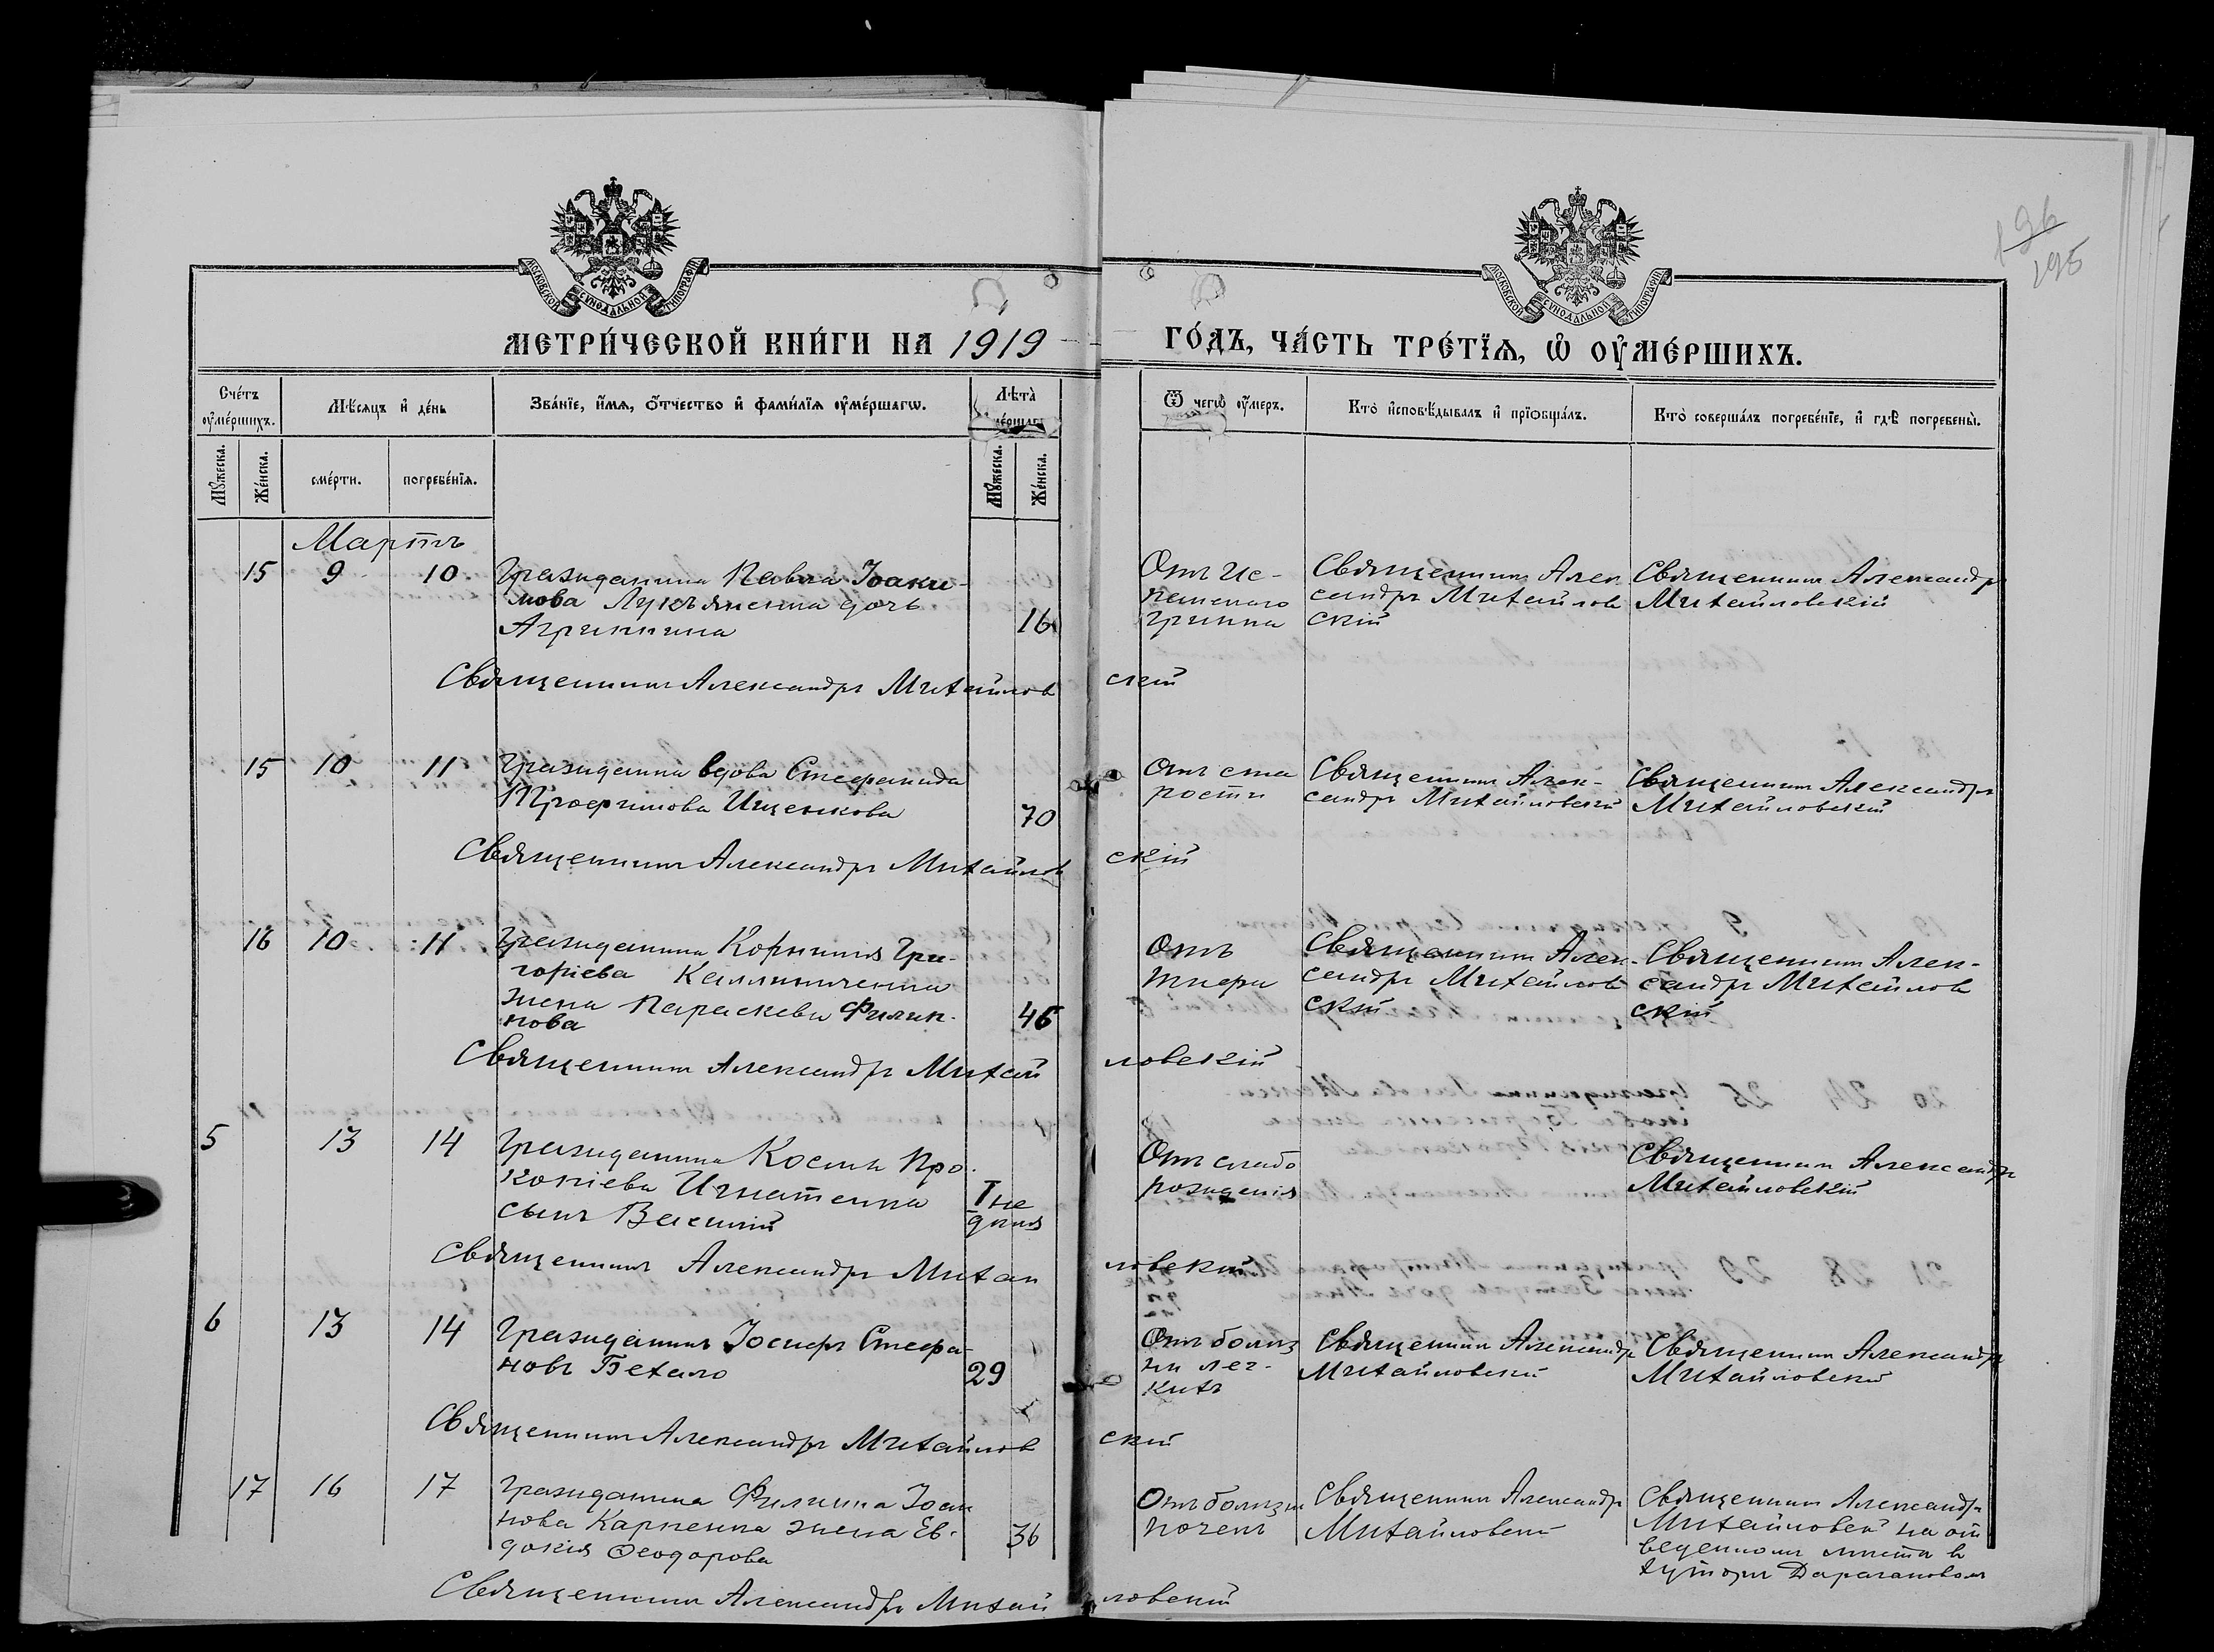 196
195
МОСКОВСКОЙ СѴНОДАЛЬНОЙ ТИПОГРАФІИ
МОСКОВСКОЙ СѴНОДАЛЬНОЙ ТИПОГРАФІИ
МЕТРИ́ЧЕСКОЙ КНИ́ГИ НА 1919
ГО́ДЪ, ЧА́СТЬ ТРЕ́ТЇѦ, Ѡ҆ ОУ҆МЕ́РШИХЪ.
Сче́тъ оу҆ме́ршихъ.
Мѣ́сѧцъ и҆ де́нь
Зва́нїе, и҆́мѧ, ѻ҆́тчество и҆ фами́лїѧ оу҆ме́ршагѡ.
Лѣ́та̀
Ѿ чегѡ̀ оу҆́меръ.
Кто̀ и҆сповѣ́дывалъ и҆ прїѡбща́лъ.
Кто̀ соверша́лъ погребе́нїе, и҆ гдѣ̀ погребены̀.
Мꙋ́жеска.
Же́нска.
сме́рти.
погребе́нїѧ.
Мꙋ́жеска.
Же́нска.
Мартъ
15 9 10 Гражданина Павла Іоаки-
мова Лукьяненка дочь
Агрипина 16
Отъ Ис-
панскаго
гриппа
Священникъ Алек
сандръ Михайлов
скій
Священникъ Александръ
Михайловскій
Священникъ Александръ Михайловскій
15 10 11 Гражданка вдова Стефанида
Трофимова Ищенкова 70
Отъ ста
рости
Священникъ Алек-
сандръ Михайловскій
Священникъ Александръ
Михайловскій
Священникъ Александръ Михайловскій
16 10 11 Гражданина Корнилія Гри-
горіева Калиниченка
жена Параскева Филип-
пова 45
Отъ
тифа
Священникъ Алек-
сандръ Михайлов
скій
Священникъ Алек-
сандръ Михайлов
скій
Священникъ Александръ Михайловскій
5 13 14 Гражданина Косьмы Про-
копіева Игнатенка
сынъ Василій 1 не
дѣля
Отъ слабо
рожденія
Священникъ Александръ
Михайловскій
Священникъ Александръ Михайловскій
6 13 14 Гражданинъ Іосифъ Стефа-
новъ Бехало 29
Отъ болѣз
ни лег-
кихъ
Священникъ Александръ
Михайловскій
Священникъ Александръ
Михайловскій
Священникъ Александръ Михайловскій
17 16 17 Гражданина Филиппа Іоан
нова Карпенка жена Ев-
докія Ѳеодорова 36
Отъ болѣзни
почекъ
Священникъ Александръ
Михайловскій
Священникъ Александръ
Михайловскій на от
веденномъ мѣстѣ в
хуторѣ Дарагановом
Священникъ Александръ Михайловскій